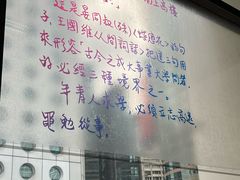 上高樓
這是晏同叔(殊)《蝶戀花》的句
子,王國維《人間詞話》把這三句用
來形容「古今之成大事業大學問者,
的必經三種境界之一。
年青人求學,必須立志高遠,
黽勉從事。